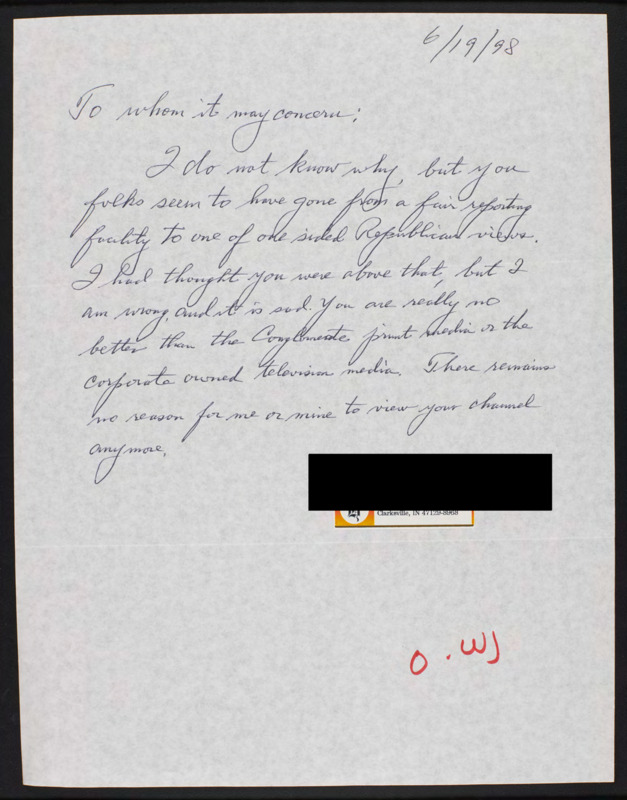 6/19/98
To whom it may concern:
I do not know why, but you
folks seem to have gone from a fair reporting
facility to one of one sided Republican views.
I had thought you were above that, but I
am wrong, and it is sad. You are really no
better than the Conglomerate print media or the
corporate owned television media. There remains
no reason for me or mine to view your channel
anymore.
Clarksville, IN 47129-8968
O.WJ